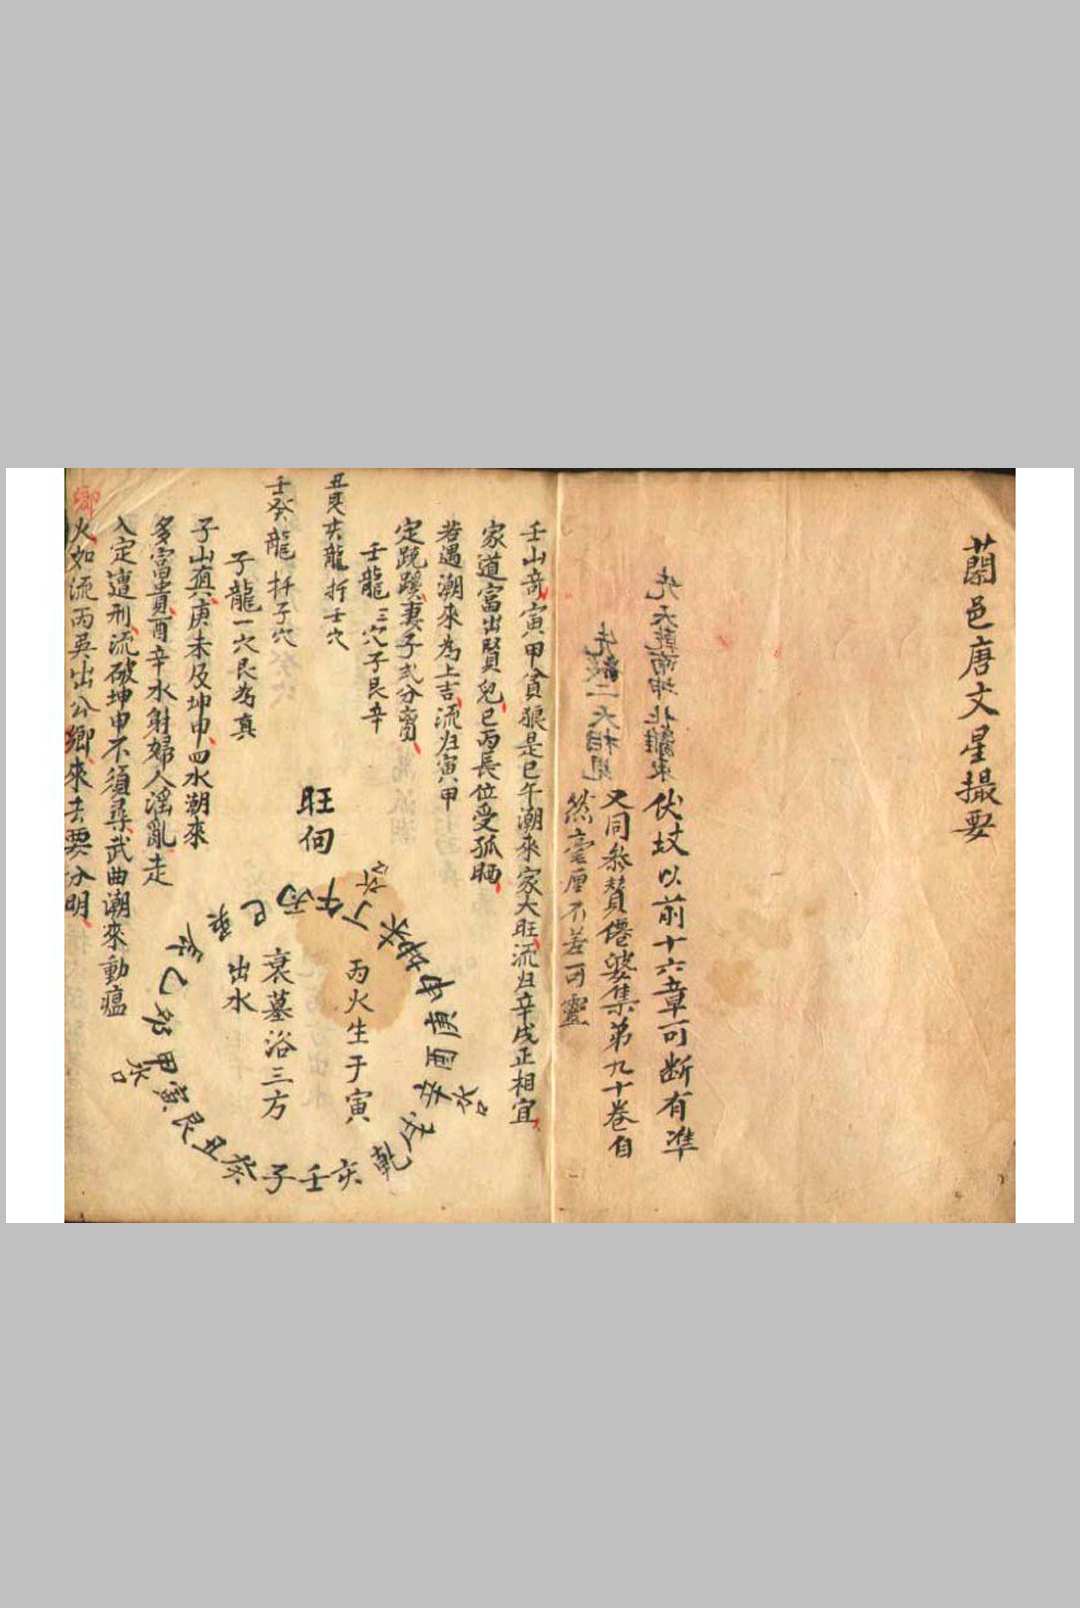 蘭邑唐文星撮要
伏坟以前十六章可断有準
又同参賛僊婆集第九十卷自
然毫厘不差可靈
壬山竒寅甲貪狼是巳午潮來家大旺流归辛戌正相宜
家道富出賢兒巳丙長位受孤
若遇潮來為上吉流归寅甲
定蹺蹊妻子式分
壬龍三穴子艮辛
丑艮亥龍扦壬穴
壬癸龍扦子穴
子龍一穴艮為真
子山真庚未及坤申四水潮來
多富貴酉辛水射婦人滛亂走
入定遭刑流破坤申不須尋武曲潮來動瘟
火如流丙吳出公卿來去要分明
鄉
旺
丙火生于寅
衰墓浴三方
出水
午丁
坤申庚酉辛戌乾亥壬子癸丑艮寅甲卯乙辰巽巳丙
水口
水口